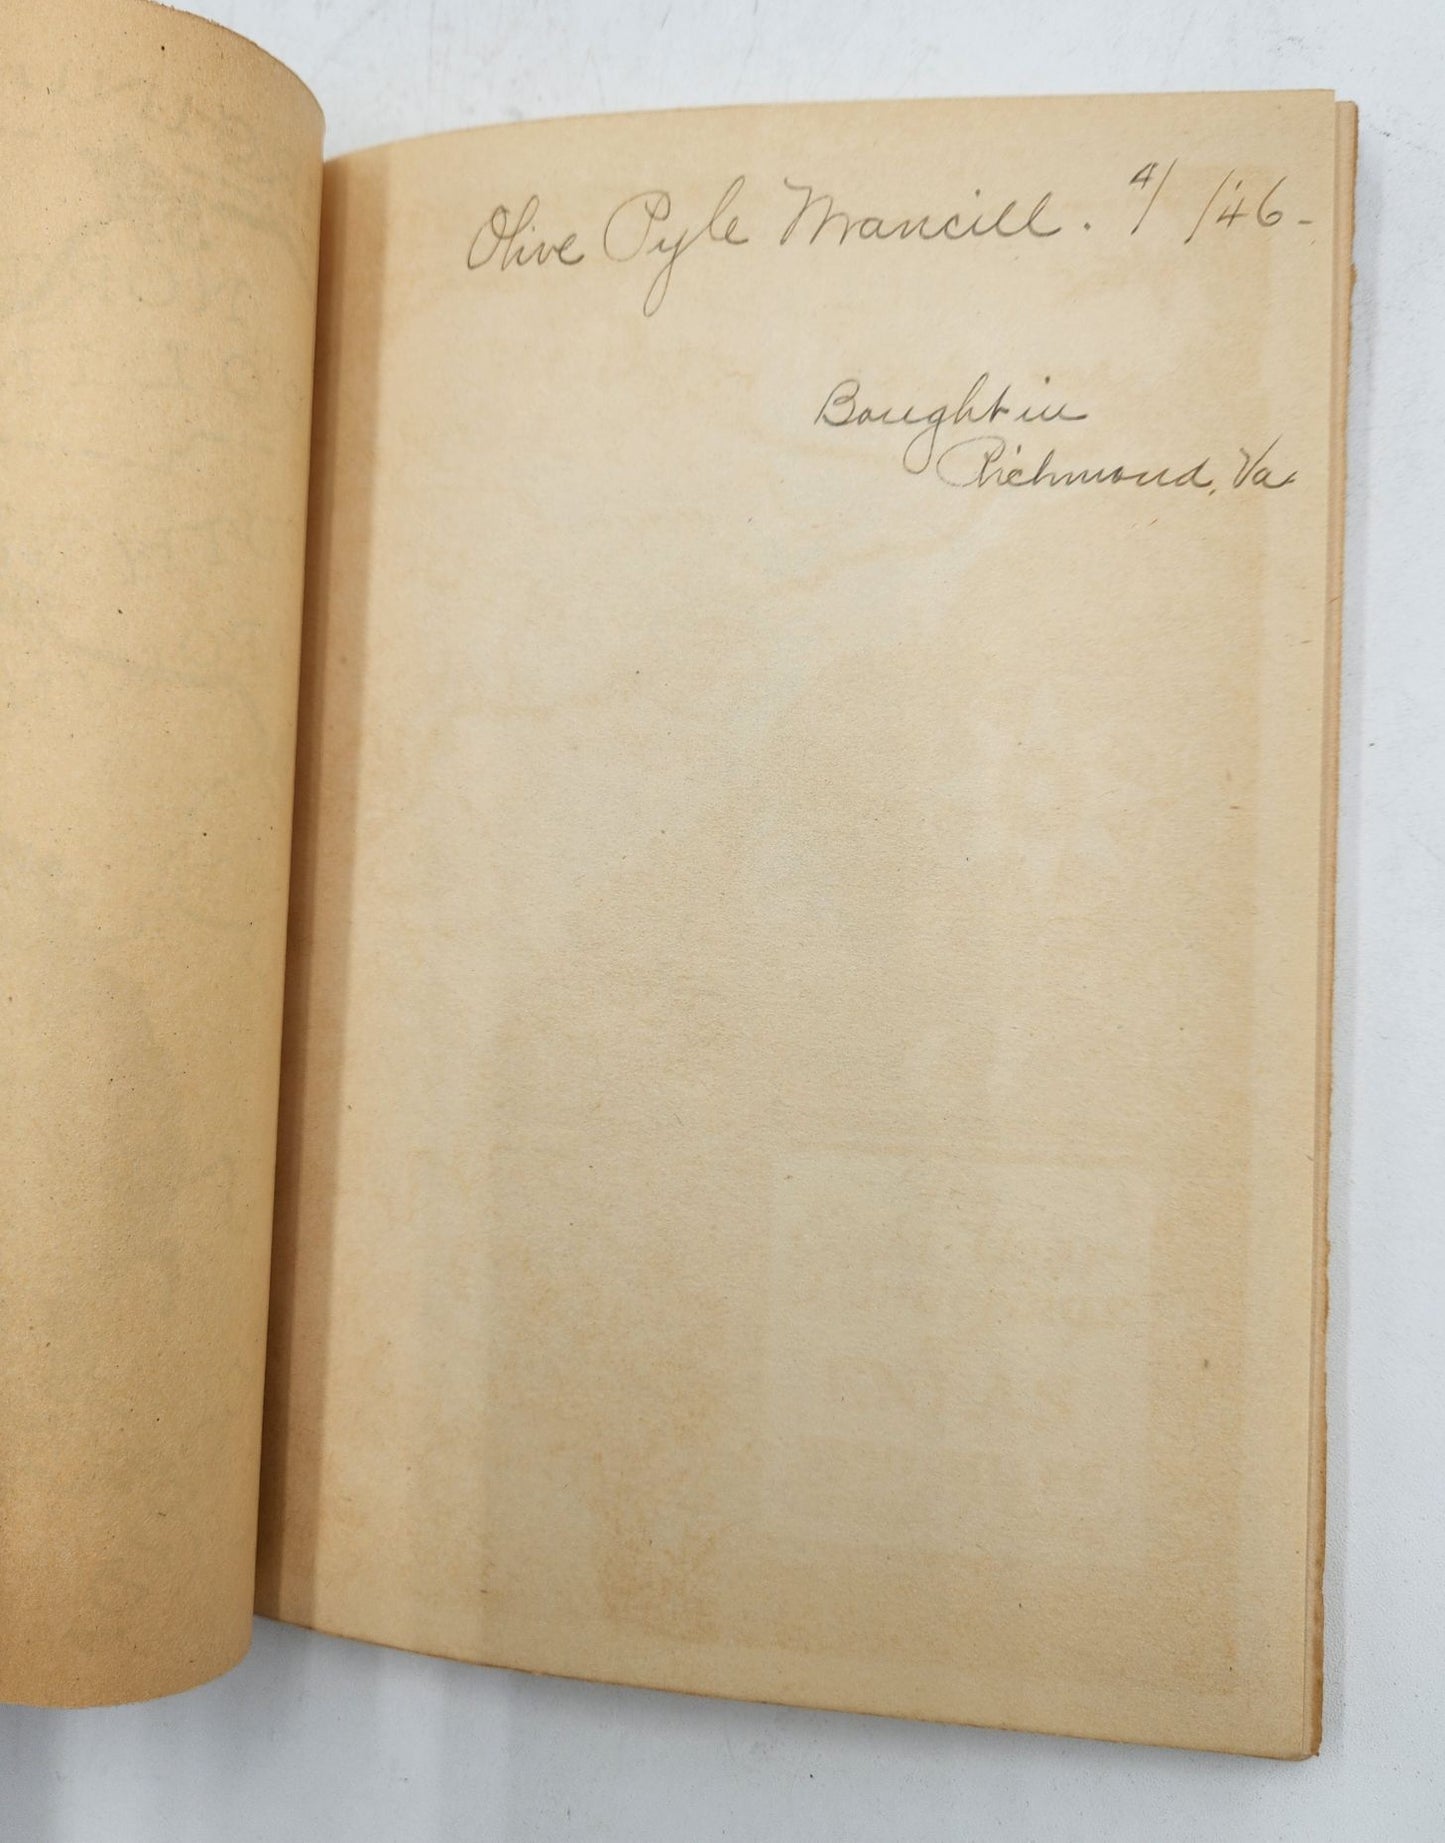 Olive Pyle Mancill. 4/ /'46-
Bought in
Richmond, Va